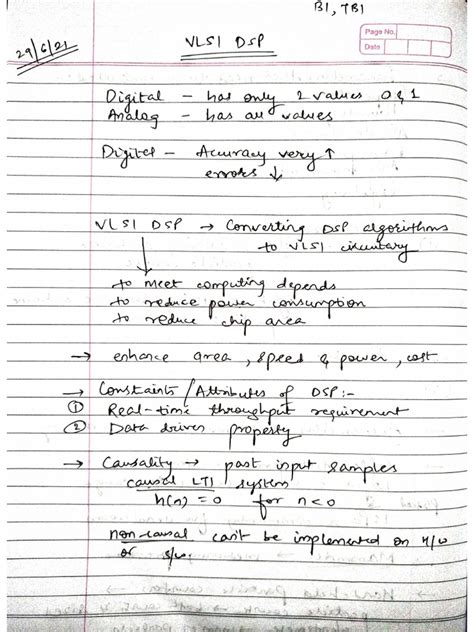 B1, TB1
Page No.
Date
29/6/21
VLSI DSP
Digital - has only 2 values 0 & 1
Analog - has all values
Digital - Accuracy very ↑
errors ↓
VLSI DSP → Converting DSP algorithms
to VLSI circuitary
to meet computing depends
to reduce power consumption
to reduce chip area
→ enhance area, speed & power, cost
→ Constaints / Attributes of DSP:-
① Real-time throughput requirement
② Data driven property
→ Causality → past input samples
causal LTI system
h(n) = 0 for n < 0
non-causal can't be implemented on H/W
or S/W.